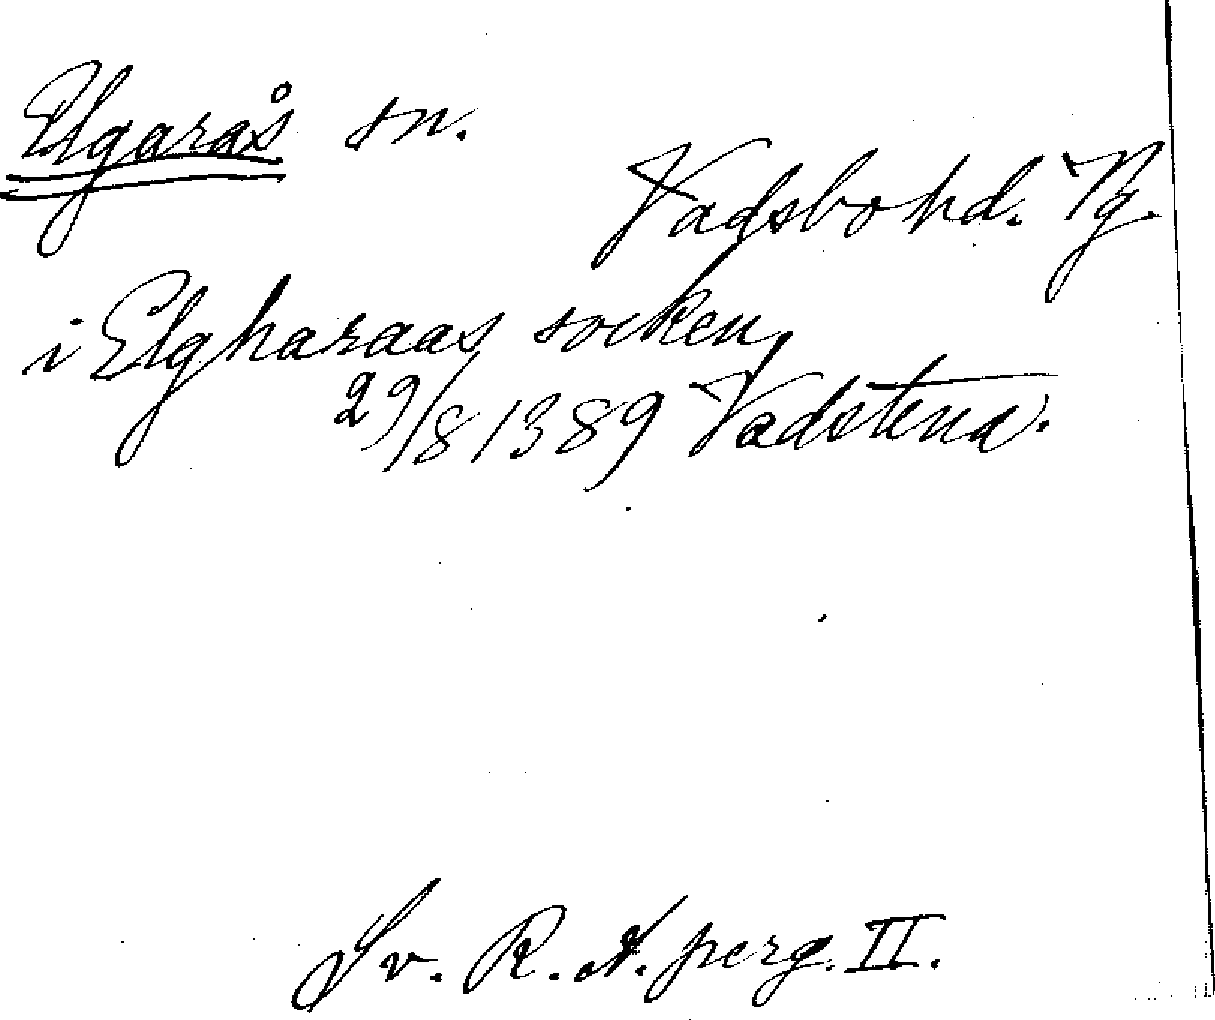 Elgarås sn.
Vadsbo hd. Vg.
i Elgharaas socken
29/8 1389 Vadstena.
Sv. R. A. perg. II.